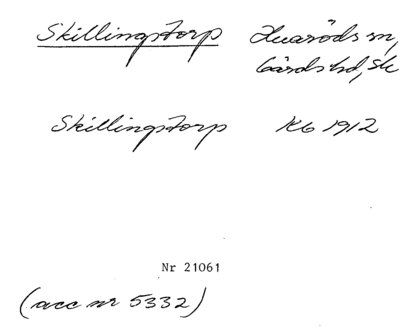 Skillingstorp Huaröds sn,
Gärds hd, Sk
Skillingstorp Kb 1912
Nr 21061
(acc nr 5332)